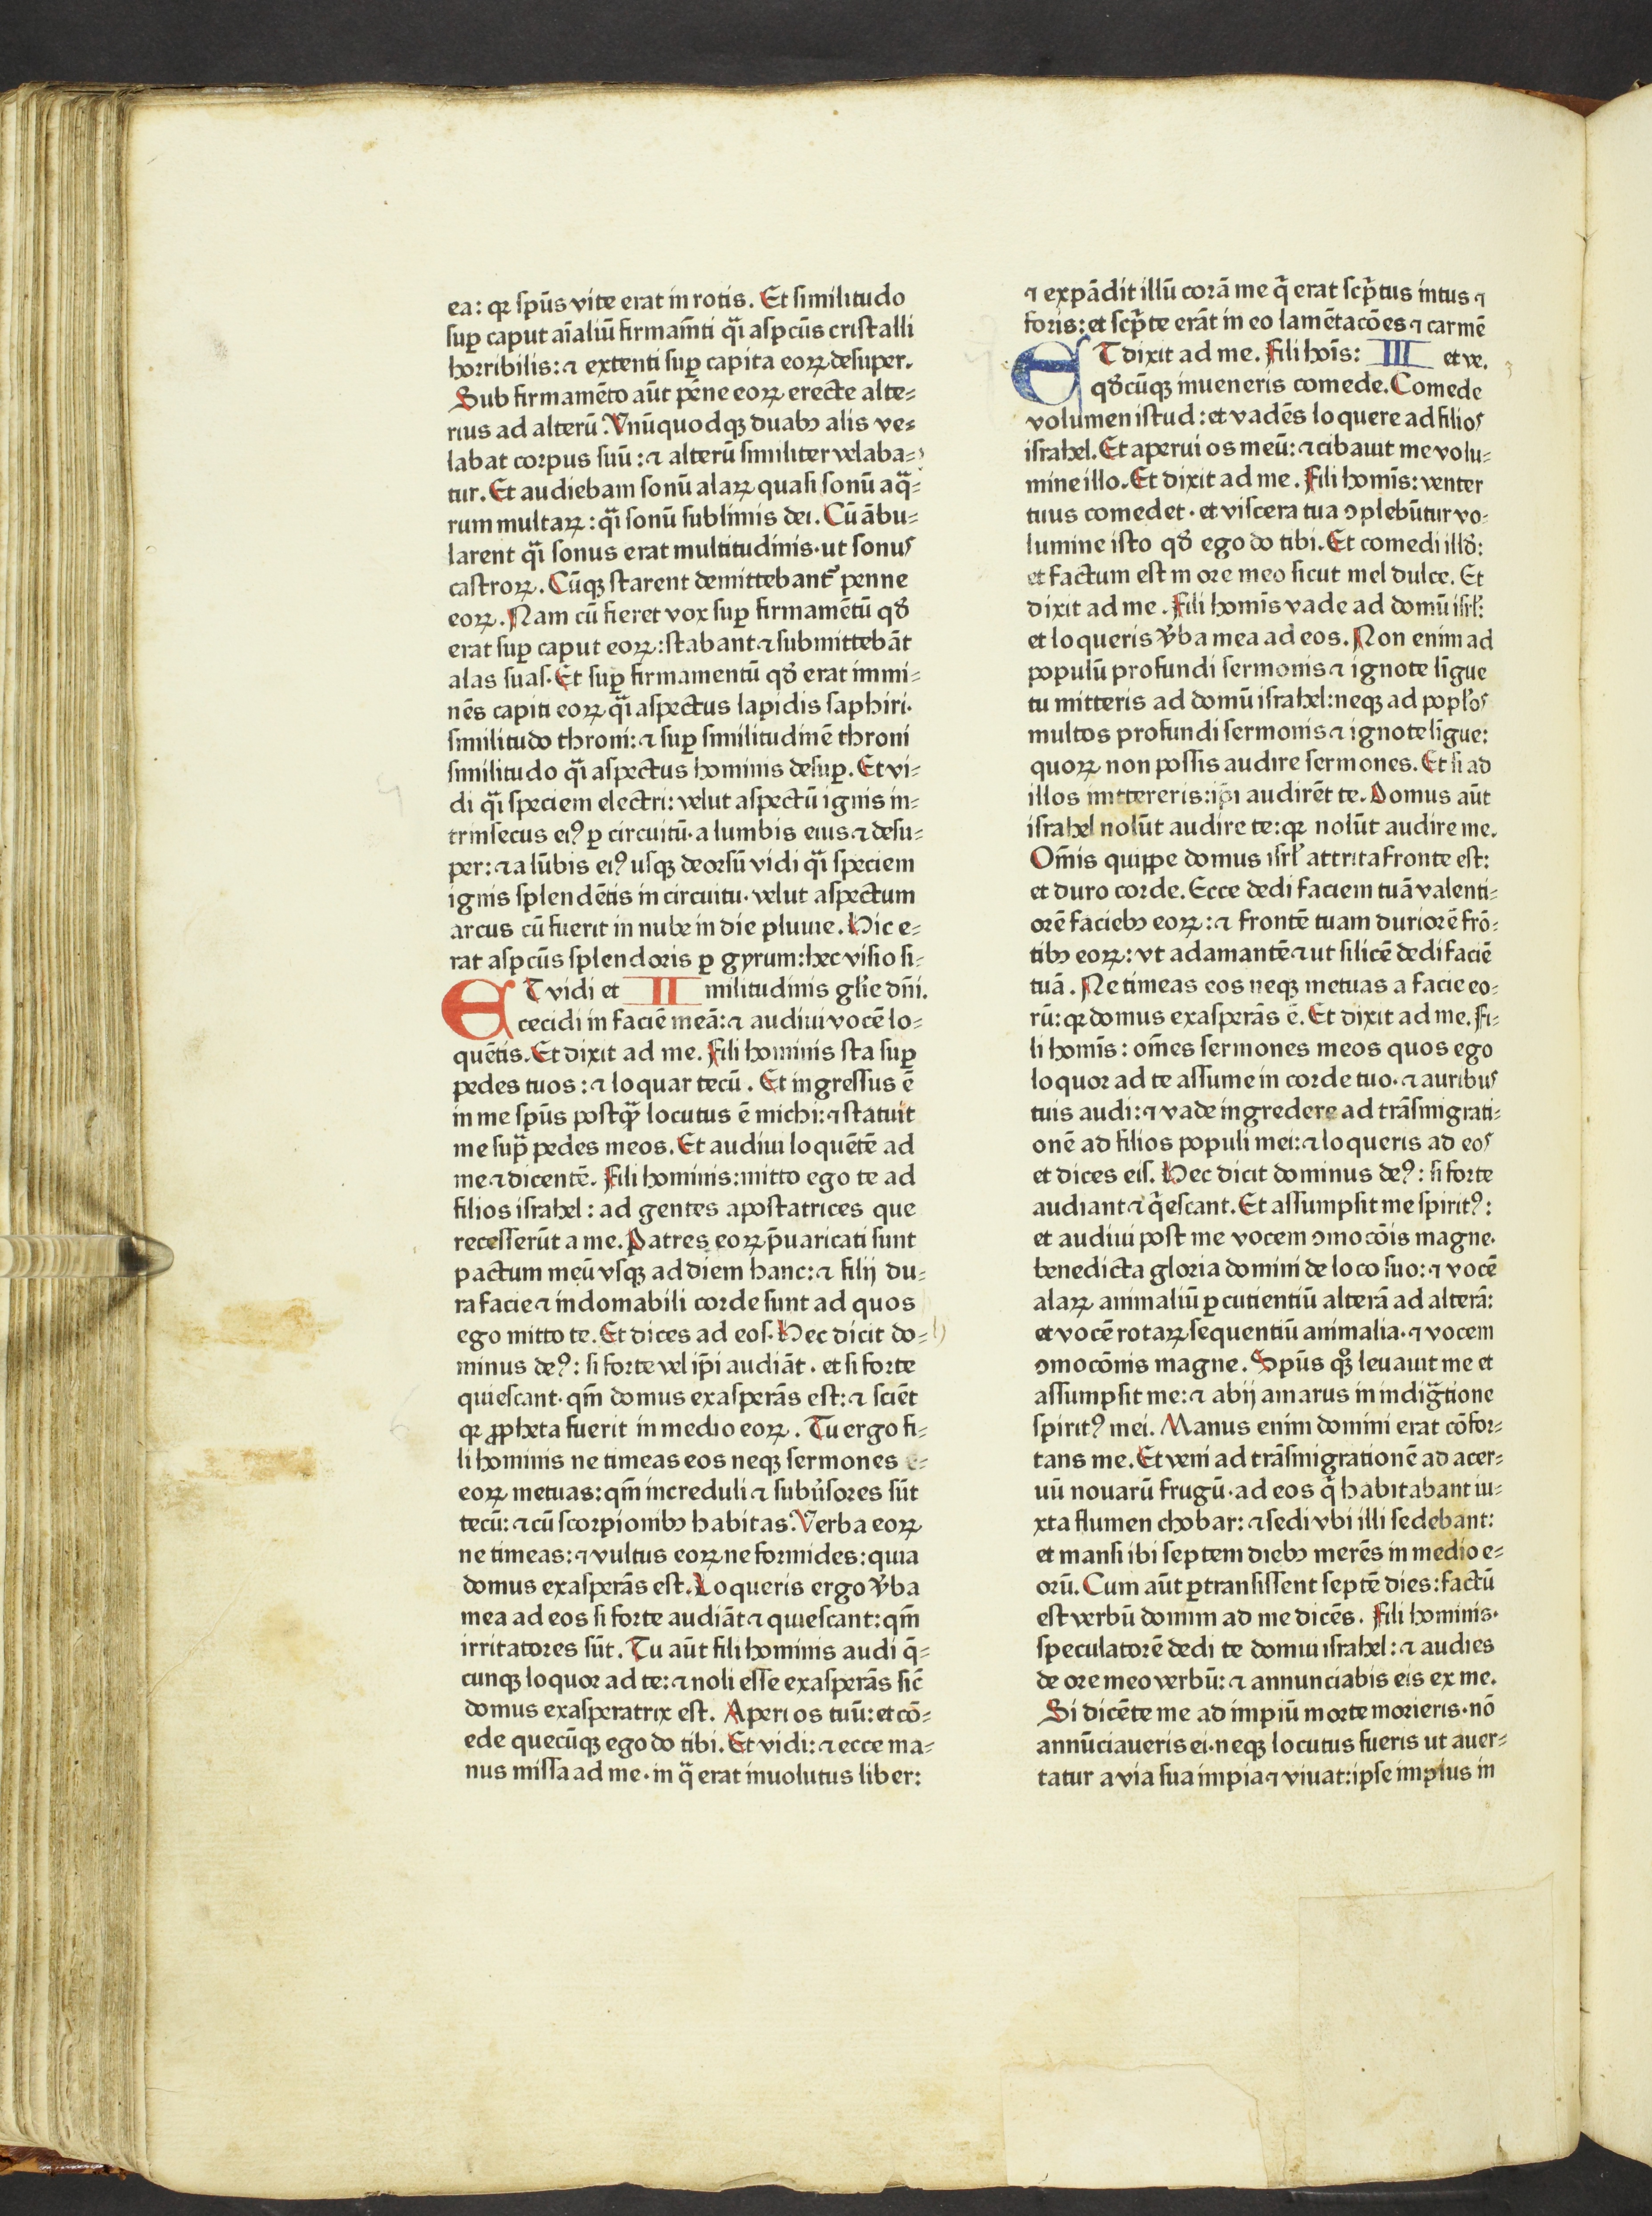 ea: qꝛ spūs vite erat in rotis. Et similitudo
suꝑ caput aīaliū firmam̄ti qͣi aspcūs cristalli
horribilis: ⁊ extenti suꝑ capita eoꝝ desuper.
Sub firmamēto aūt pēne eoꝝ erecte alte⸗
rius ad alterū. Vnūquodqꝫ duabꝫ alis ve⸗
labat corpus suū: ⁊ alterū similiter velaba⸗
tur. Et audiebam sonū alaꝝ quasi sonū aq̄⸗
rum multaꝝ: qͣi sonū sublimis dei. Cū ābu⸗
larent qͣi sonus erat multitudinis· ut sonus
castroꝝ. Cūqꝫ starent demittebant᷑ penne
eoꝝ. Nam cū fieret vox suꝑ firmamētū qđ
erat suꝑ caput eoꝝ: stabant ⁊ submittebāt
alas suas. Et suꝑ firmamentū qđ erat immi⸗
nēs capiti eoꝝ qͣi aspectus lapidis saphiri·
similitudo throni: ⁊ suꝑ similitudinē throni
similitudo qͣi aspectus hominis desuꝑ. Et vi⸗
di qͣi speciem electri: velut aspectū ignis in⸗
trinsecus eiꝰ ꝑ circuitū· a lumbis eius ⁊ desu⸗
per: ⁊ a lūbis eiꝰ usqꝫ deorsū vidi qͣi speciem
ignis splendētis in circuitu· velut aspectum
arcus cū fuerit in nube in die pluuie. Hic e⸗
rat aspcūs splendoris ꝑ gyrum: hec visio si⸗
ET vidi et II militudinis gl̄ie dn̄i.
cecidi in faciē meā: ⁊ audiui vocē lo⸗
quētis. Et dixit ad me. Fili hominis sta suꝑ
pedes tuos: ⁊ loquar tecū. Et ingressus ē
in me spūs postqͣ̄ locutus ē michi: ⁊ statuit
me supͣ pedes meos. Et audiui loquētē ad
me ⁊ dicentē. Fili hominis: mitto ego te ad
filios israhel: ad gentes apostatrices que
recesserūt a me. Patres eoꝝ p̄uaricati sunt
pactum meū vsqꝫ ad diem hanc: ⁊ filij du⸗
ra facie ⁊ indomabili corde sunt ad quos
ego mitto te. Et dices ad eos. Hec dicit do⸗
minus deꝰ: si forte vel ip̄i audiāt· et si forte
quiescant· qm̄ domus exasperās est: ⁊ sciēt
qꝛ ꝓpheta fuerit in medio eoꝝ. Tu ergo fi⸗
li hominis ne timeas eos neqꝫ sermones e⸗
eoꝝ metuas: qm̄ increduli ⁊ subu̓sores sūt
tecū: ⁊ cū scorpionibꝫ habitas. Verba eoꝝ
ne timeas: ⁊ vultus eoꝝ ne formides: quia
domus exasperās est. Loqueris ergo v̓ba
mea ad eos si forte audiāt ⁊ quiescant: qm̄
irritatores sūt. Tu aūt fili hominis audi q̄⸗
cunqꝫ loquor ad te: ⁊ noli esse exasperās sic̄
domus exasperatrix est. Aperi os tuū: et cō⸗
ede quecūqꝫ ego do tibi. Et vidi: ⁊ ecce ma⸗
nus missa ad me· in q̄ erat inuolutus liber:
⁊ expādit illū corā me q̄ erat scp̄tus intus ⁊
foris: et scp̄te erāt in eo lamētacōes ⁊ carmē
ET dixit ad me. Fili hoīs: III et ve.
qđcūqꝫ inueneris comede. Comede
volumen istud: et vadēs loquere ad filios
israhel. Et aperui os meū: ⁊ cibauit me volu⸗
mine illo. Et dixit ad me. Fili homīs: venter
tuus comedet· et viscera tua ↄplebūtur vo⸗
lumine isto qđ ego do tibi. Et comedi illđ:
et factum est in ore meo sicut mel dulce. Et
dixit ad me. Fili homīs vade ad domū isrl̓:
et loqueris v̓ba mea ad eos. Non enim ad
populū profundi sermonis ⁊ ignote līgue
tu mitteris ad domū israhel: neqꝫ ad popl̓os
multos profundi sermonis ⁊ ignote līgue:
quoꝝ non possis audire sermones. Et si ad
illos mittereris: ip̄i audirēt te. Domus aūt
israhel nolūt audire te: qꝛ nolūt audire me.
Om̄is quippe domus isrl̓ attrita fronte est:
et duro corde. Ecce dedi faciem tuā valenti⸗
orē faciebꝫ eoꝝ: ⁊ frontē tuam duriorē frō⸗
tibꝫ eoꝝ: vt adamantē ⁊ ut silicē dedi faciē
tuā. Ne timeas eos neqꝫ metuas a facie eo⸗
rū: qꝛ domus exasperās ē. Et dixit ad me. Fi⸗
li homīs: om̄es sermones meos quos ego
loquor ad te assume in corde tuo· ⁊ auribus
tuis audi: ⁊ vade ingredere ad trāsmigrati⸗
onē ad filios populi mei: ⁊ loqueris ad eos
et dices eis. Hec dicit dominus deꝰ: si forte
audiant ⁊ q̄escant. Et assumpsit me spiritꝰ:
et audiui post me vocem ↄmocōis magne·
benedicta gloria domini de loco suo: ⁊ vocē
alaꝝ animaliū ꝑcutientiū alterā ad alterā:
et vocē rotaꝝ sequentiū animalia· ⁊ vocem
ↄmocōnis magne. Spūs qꝫ leuauit me et
assumpsit me: ⁊ abij amarus in indigͣtione
spiritꝰ mei. Manus enim domini erat cōfor⸗
tans me. Et veni ad trāsmigrationē ad acer⸗
uū nouarū frugū· ad eos q̄ habitabant iu⸗
xta flumen chobar: ⁊ sedi vbi illi sedebant:
et mansi ibi septem diebꝫ merēs in medio e⸗
orū. Cum aūt ꝑtransissent septē dies: factū
est verbū domini ad me dicēs. Fili hominis·
speculatorē dedi te domui israhel: ⁊ audies
de ore meo verbū: ⁊ annunciabis eis ex me.
Si dicēte me ad impiū morte morieris· nō
annūciaueris ei· neqꝫ locutus fueris ut auer⸗
tatur a via sua impia ⁊ viuat: ipse impius in